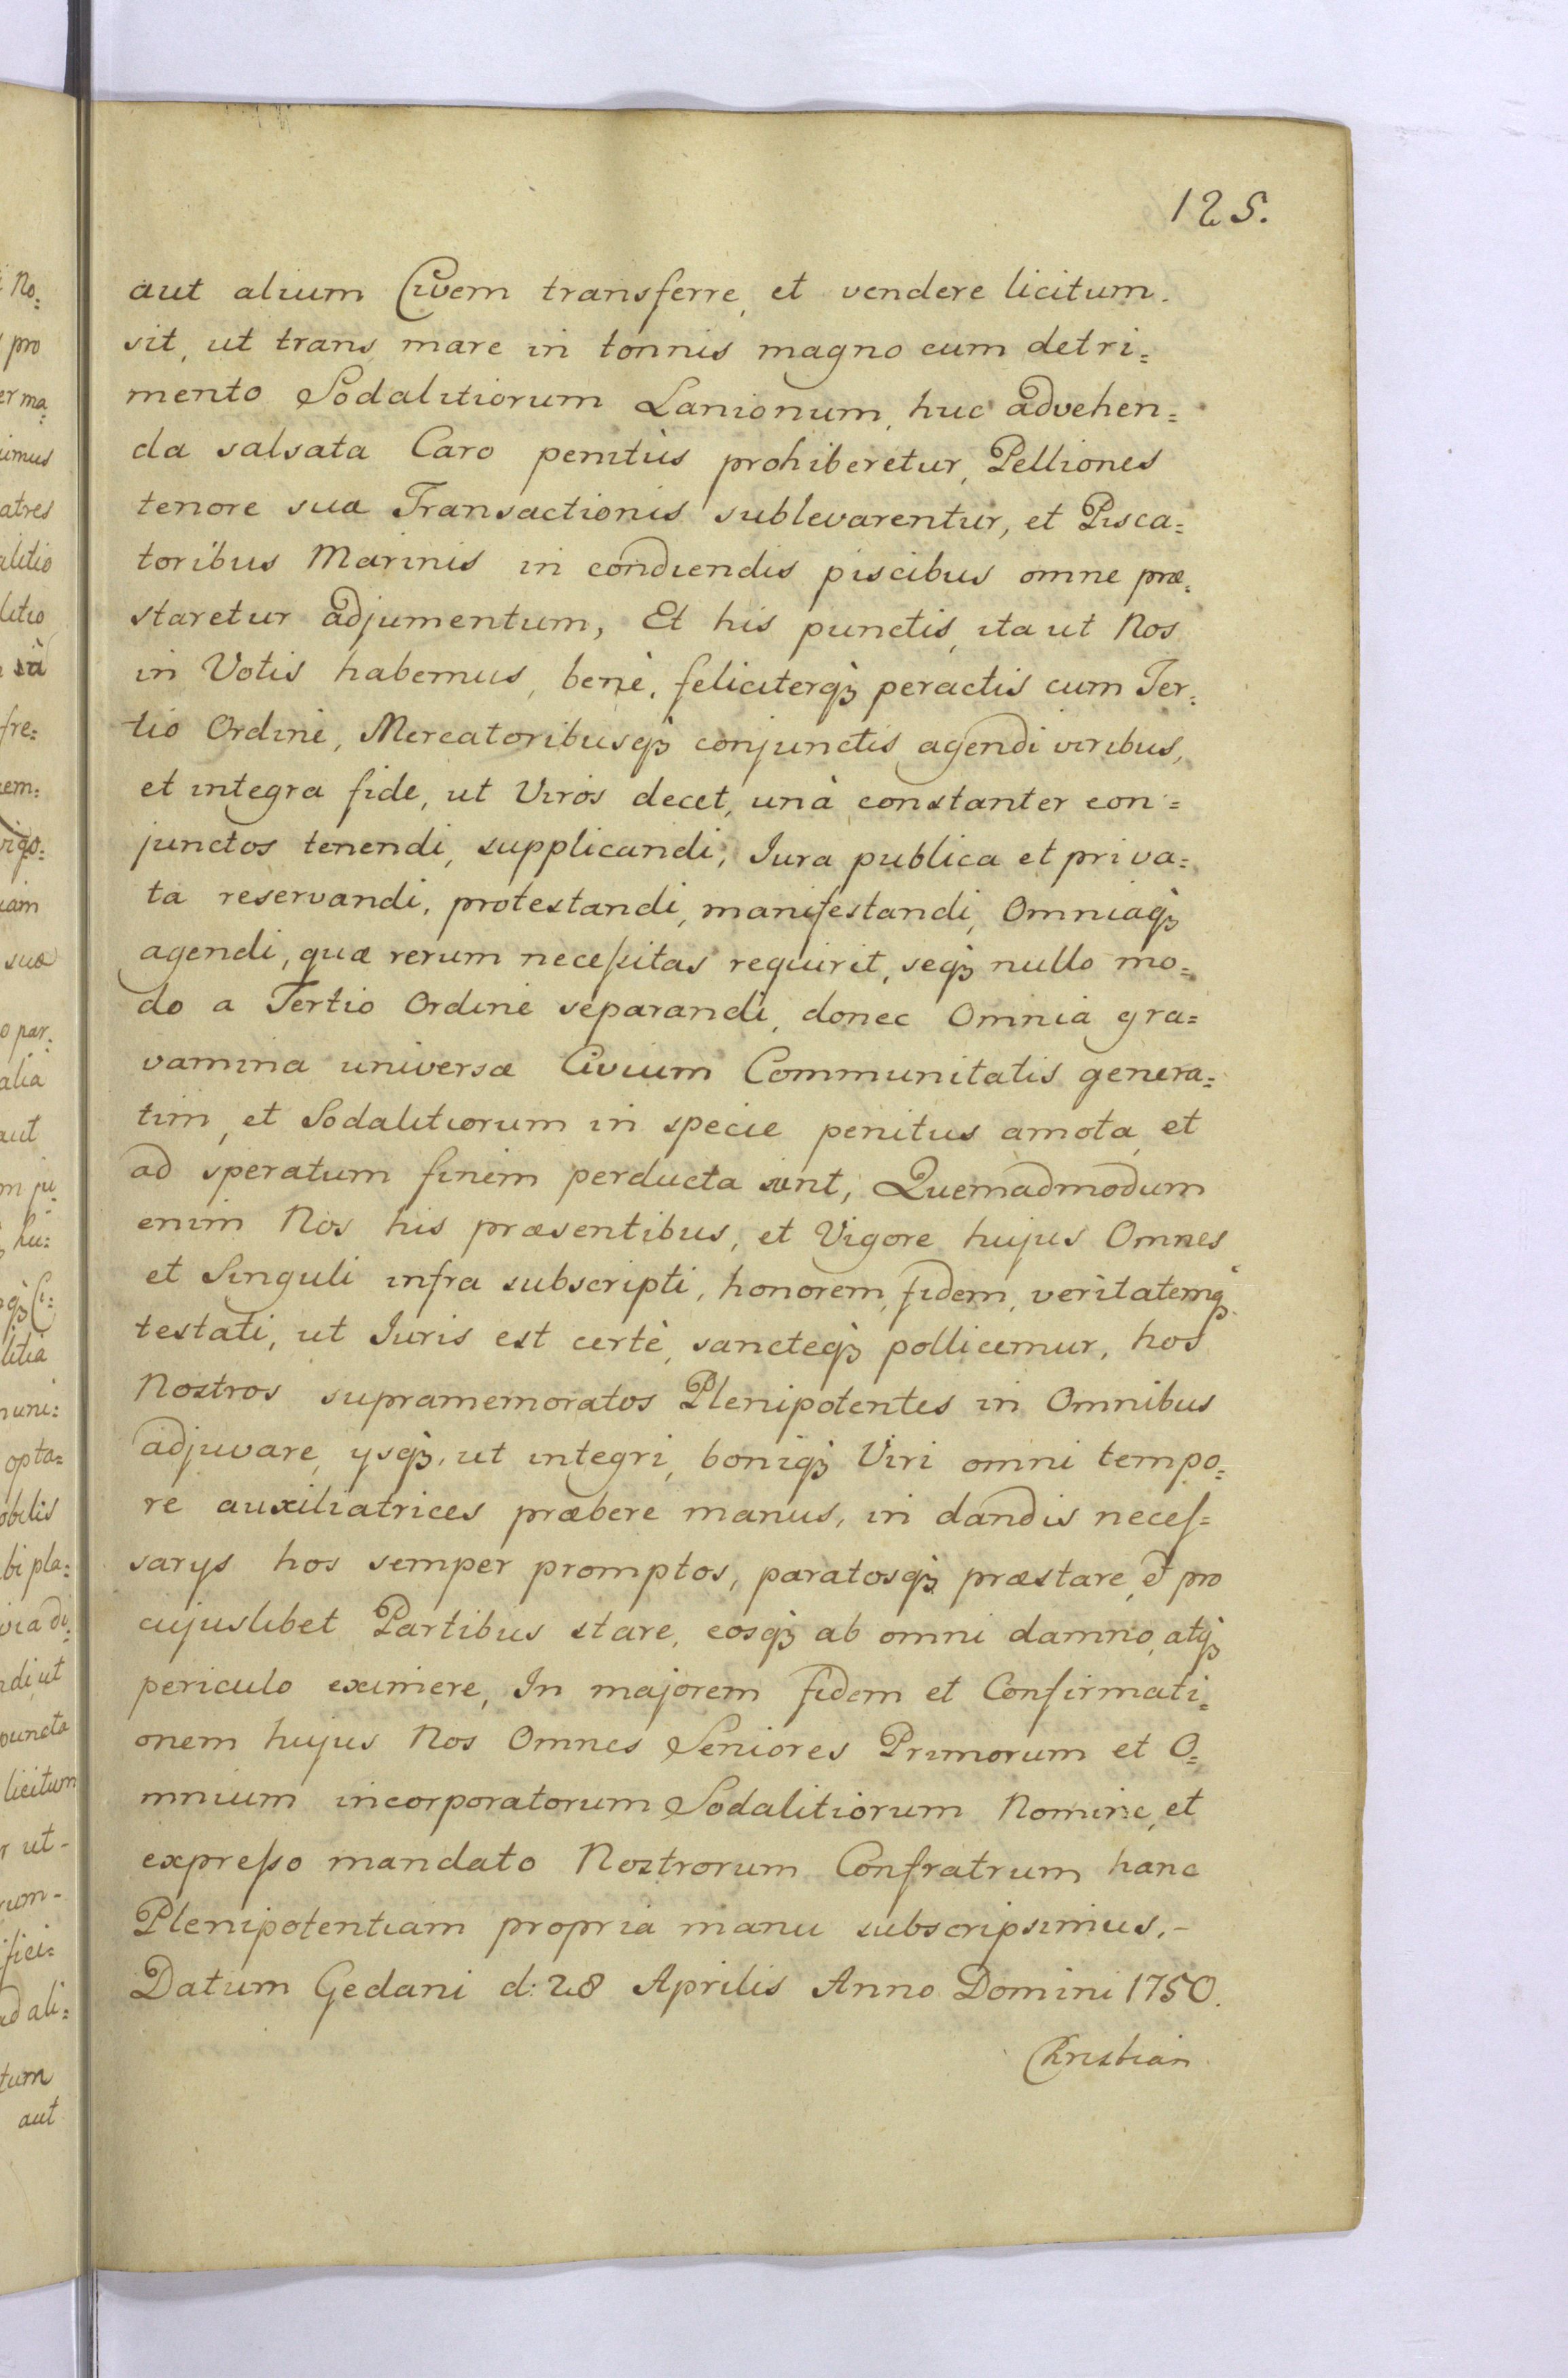 125.
aut alium Civem transferre, et vendere licitum.
sit, ut trans mare in tonnis magno cum detri=
mento Sodalitiorum Lanionum, huc advehen=
da salsata Caro penitùs prohiberetur, Pelliones
tenore sua Transactionis sublevarentur, et Pisca=
toribus Marinis in condiendis piscibus omne præ=
staretur adjumentum, Et his punctis, ita ut Nos
in Votis habemus, benè, feliciterq3 peractis cum Ter=
tio Ordine, Mercatoribusq3 conjunctis agendi viribus,
et integra fide, ut Viros decet, unà constanter con=
junctos tenendi, supplicandi, Iura publica et priva=
ta reservandi, protestandi, manifestandi, Omniaq3
agendi, quæ rerum neceſsitas requirit, seq3 nullo mo=
do a Tertio Ordine separandi, donec Omnia gra=
vamina universæ Civium Communitatis genera=
tim, et Sodalitiorum in specie penitus amota, et
ad speratum finem perducta sint, Quemadmodum
enim Nos his præsentibus, et Vigore hujus Omnes
et Singuli infra subscripti, honorem, fidem, veritatemq3
testati, ut Iuris est certè, sancteq3 pollicemur, hos
Nostros supramemoratos Plenipotentes in Omnibus
adjuvare, ysq3, ut integri, boniq3 Viri omni tempo=
re auxiliatrices præbere manus, in dandis neceſ=
sarys hos semper promptos, paratosq3 præstare, et pro
cujuslibet Partibus stare, eosq3 ab omni damno, atq3
periculo eximere, In majorem fidem et Confirmati=
onem hujus Nos Omnes Seniores Primorum et O=
mnium incorporatorum Sodalitiorum Nomine, et
expreſso mandato Nostrorum Confratrum hanc
Plenipotentiam propria manu subscripsimus.-
Datum Gedani d: 28 Aprilis Anno Domini 1750.
Christian